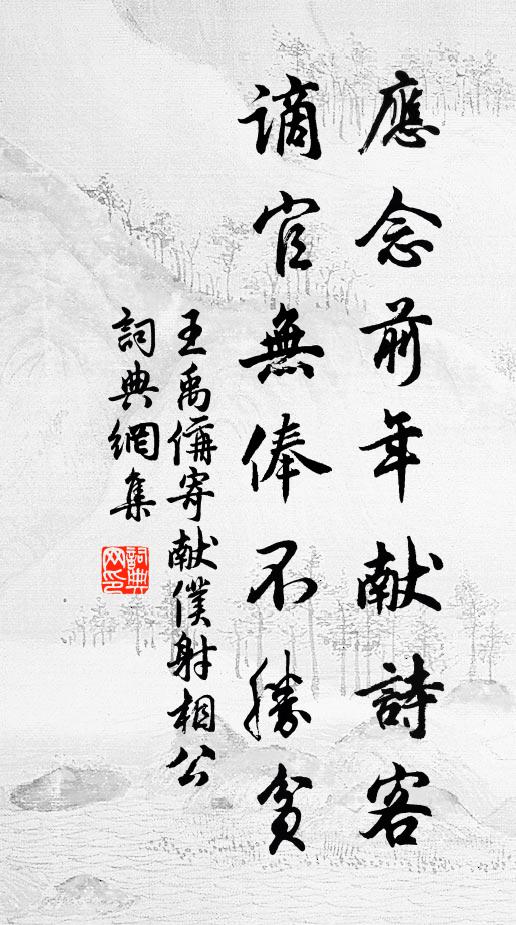 應念前年献詩客
謫官無俸不勝貧
王禹偁寄献僕射相公
詞典網集
詞典網印